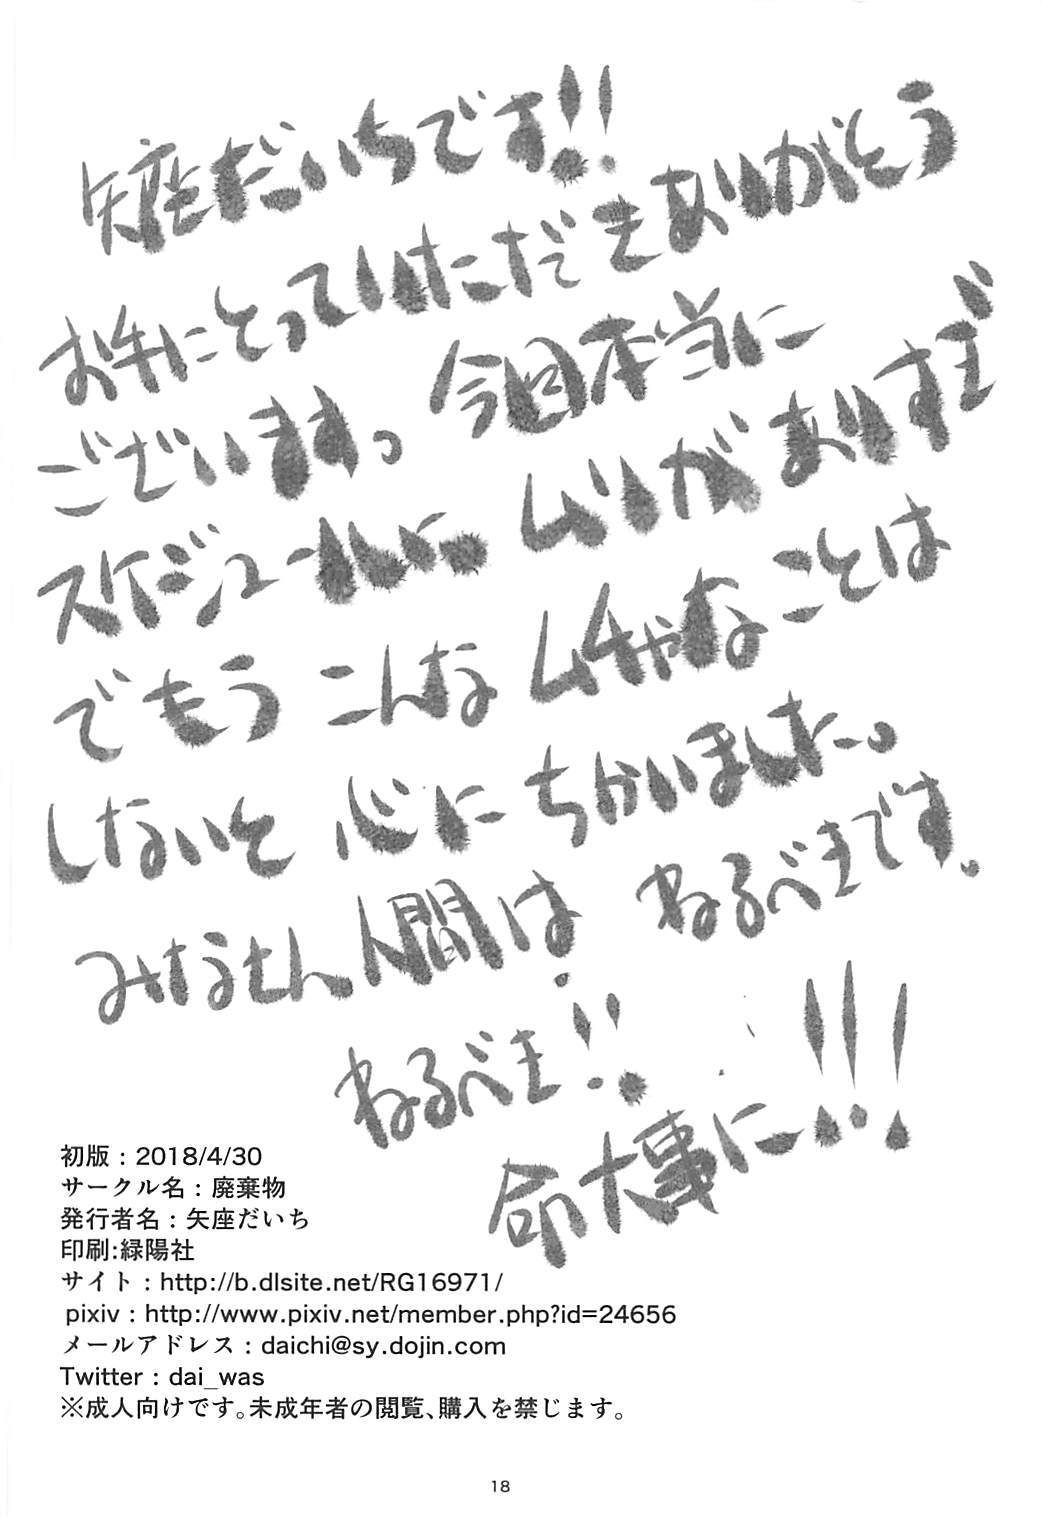 矢座だいちです!!
お手にとっていただきありがとう
ございます。今回本当に
スケジュールに、ムリがありすぎ
でもう こんな ムチャなことは
しないと 心に ちかいました。
みなさん人間は ねるべきです。
ねるべき!!
命大事に!!!
初版：2018/4/30
サークル名：廃棄物
発行者名：矢座だいち
印刷:緑陽社
サイト：http://b.dlsite.net/RG16971/
pixiv：http://www.pixiv.net/member.php?id=24656
メールアドレス：daichi@sy.dojin.com
Twitter：dai_was
※成人向けです。未成年者の閲覧、購入を禁じます。
18